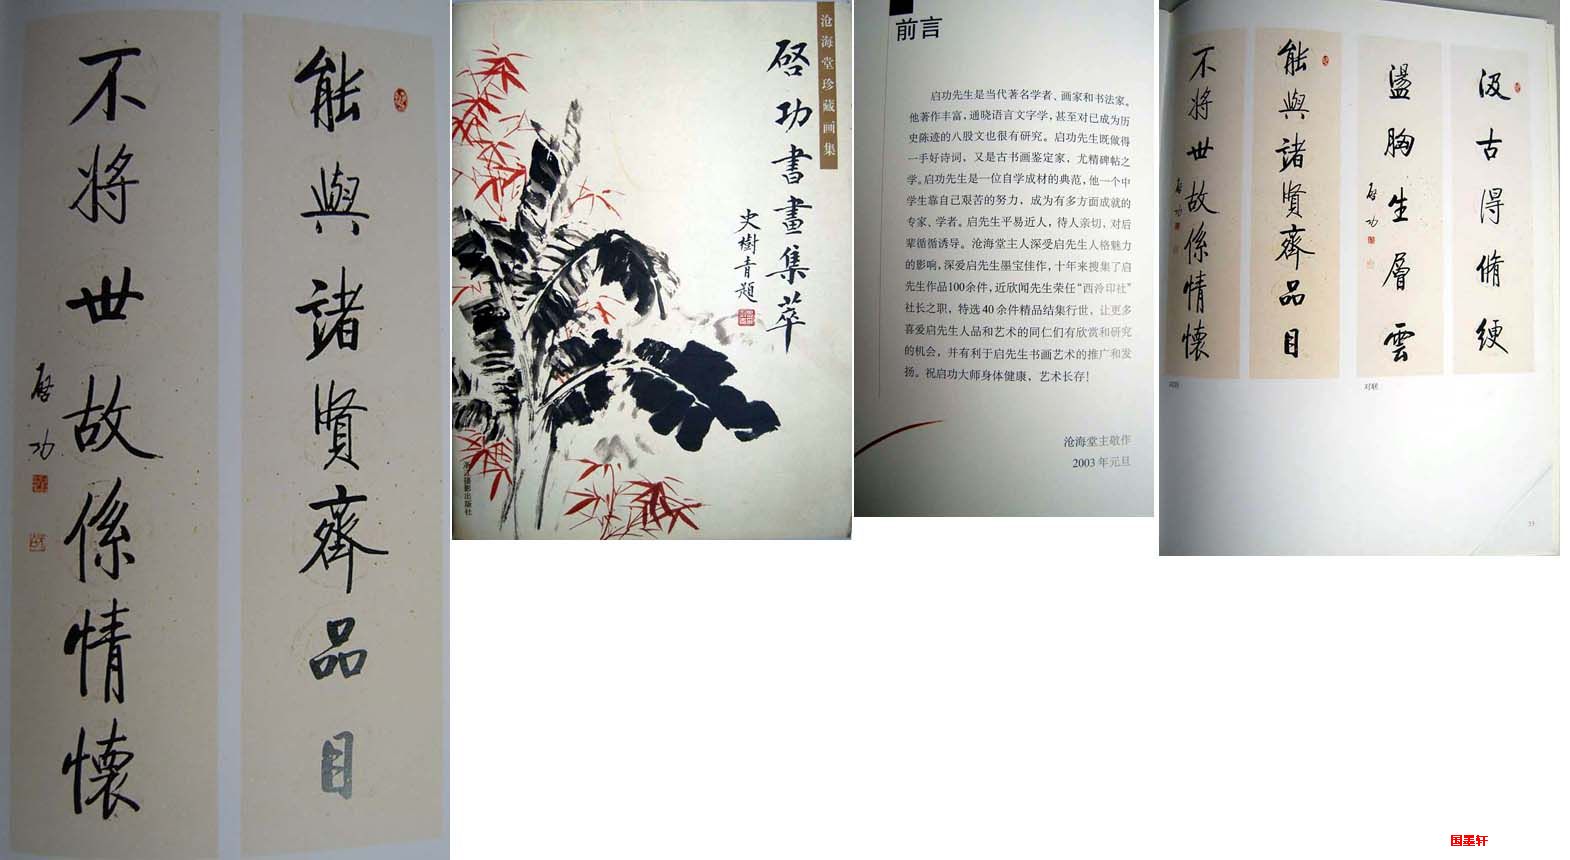 能與諸賢齊品目
不將世故係情懷
啓功
沧海堂珍藏画集
啓功書畫集萃
史樹青題
浙江摄影出版社
前言
启功先生是当代著名学者、画家和书法家。
他著作丰富，通晓语言文字学，甚至对已成为历
史陈迹的八股文也很有研究。启功先生既做得
一手好诗词，又是古书画鉴定家，尤精碑帖之
学。启功先生是一位自学成材的典范，他一个中
学生靠自己艰苦的努力，成为有多方面成就的
专家、学者。启先生平易近人，待人亲切，对后
辈循循诱导。沧海堂主人深受启先生人格魅力
的影响，深爱启先生墨宝佳作，十年来搜集了启
先生作品100余件，近欣闻先生荣任“西泠印社”
社长之职，特选40余件精品结集行世，让更多
喜爱启先生人品和艺术的同仁们有欣赏和研究
的机会，并有利于启先生书画艺术的推广和发
扬。祝启功大师身体健康，艺术长存！
沧海堂主敬作
2003年元旦
汲古得脩绠
盪胸生層雲
啓功
能與諸賢齊品目
不將世故係情懷
啓功
对联
对联
33
国墨轩